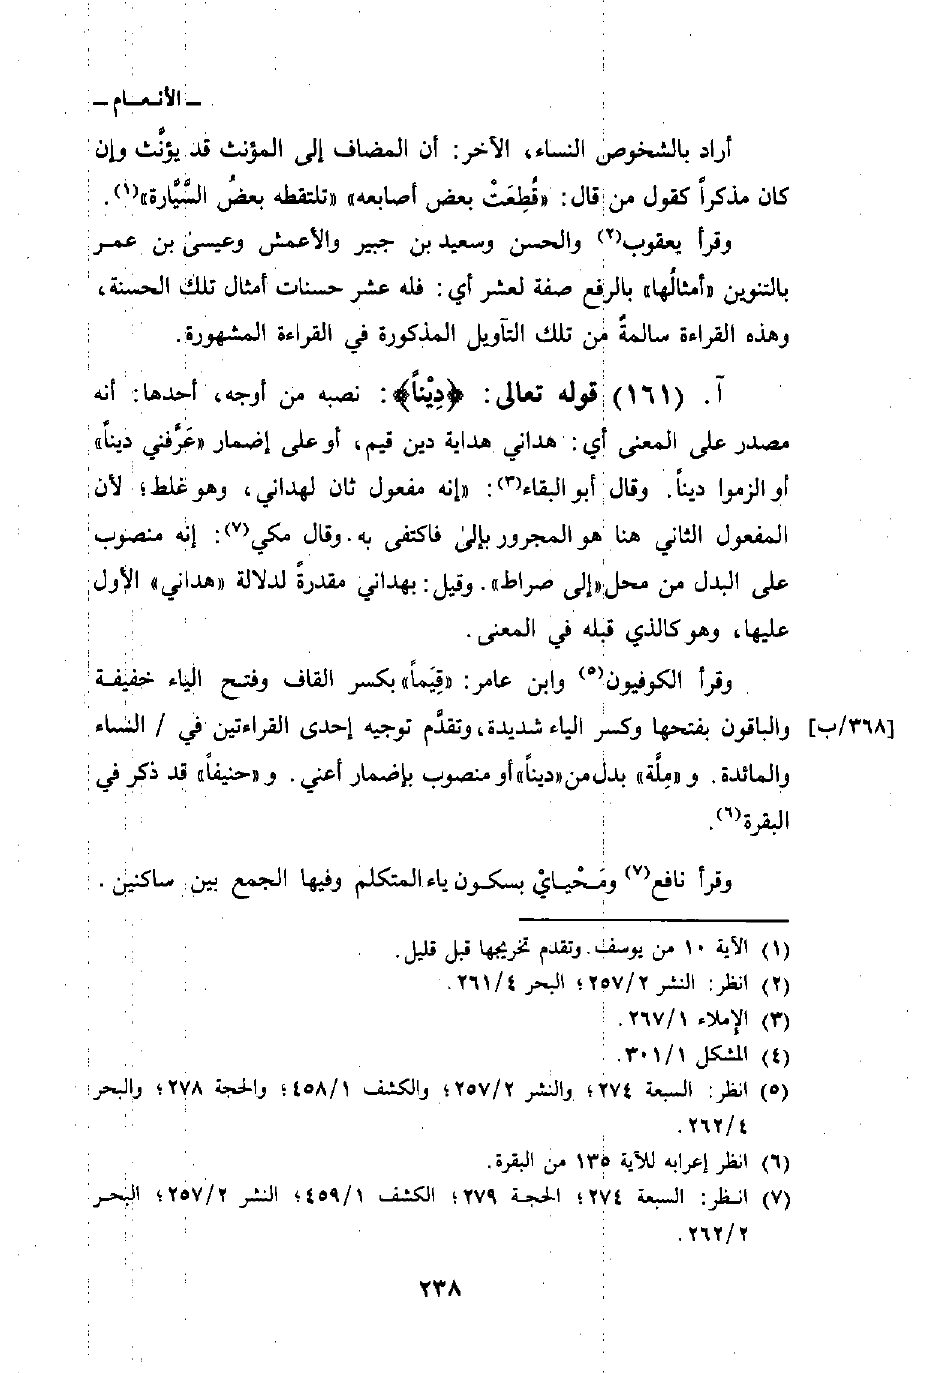 ـ الأنـعـــام ـ
أراد بالشخوص النساء، الآخر: أن المضاف إلى المؤنث قد يؤنَّث وإن
كان مذكراً كقول من قال: «قُطِعَتْ بعض أصابعه» «تلتقطه بعضُ السَّيَّارة»(١).
وقرأ يعقوب(٢) والحسن وسعيد بن جبير والأعمش وعيسىٰ بن عمـر
بالتنوين «أمثالُها» بالرفع صفة لعشر أي: فله عشر حسنات أمثال تلك الحسنة،
وهذه القراءة سالمةٌ من تلك التآويل المذكورة في القراءة المشهورة.
آ. (١٦١) قوله تعالى: ﴿دِيْناً﴾: نصبه من أوجه، أحدها: أنه
مصدر على المعنى أي: هداني هداية دين قيم، أو على إضمار «عَرَّفني ديناً»
أو الزموا ديناً. وقال أبو البقاء(٣): «إنه مفعول ثان لهداني، وهو غلط؛ لأن
المفعول الثاني هنا هو المجرور بإلىٰ فاكتفى به. وقال مكي(٧): إنه منصوب
على البدل من محل «إلى صراط». وقيل: بهداني مقدرةً لدلالة «هداني» الأول
عليها، وهو كالذي قبله في المعنى.
وقرأ الكوفيون(٥) وابن عامر: «قِيَماً» بكسر القاف وفتـح الياء خفيفـة
والباقون بفتحها وكسر الياء شديدة، وتقدَّم توجيه إحدى القراءتين في / النساء [٣٦٨/ب]
والمائدة. و «مِلَّة» بدل من «ديناً» أو منصوب بإضمار أعني. و «حنيفاً» قد ذكر في
البقرة(٦).
وقرأ نافع(٧) ومَـحْيـايْ بسكـون ياء المتكلم وفيها الجمع بين ساكنين.
(١) الآية ١٠ من يوسف. وتقدم تخريجها قبل قليل.
(٢) انظر: النشر ٢٥٧/٢؛ البحر ٢٦١/٤.
(٣) الإملاء ٢٦٧/١.
(٤) المشكل ٣٠١/١.
(٥) انظر: السبعة ٢٧٤؛ والنشر ٢٥٧/٢؛ والكشف ٤٥٨/١؛ والحجة ٢٧٨؛ والبحر
٢٦٢/٤.
(٦) انظر إعرابه للآية ١٣٥ من البقرة.
(٧) انـظر: السبعة ٢٧٤؛ الحجـة ٢٧٩؛ الكشف ٤٥٩/١؛ النشر ٢٥٧/٢؛ البحـر
٢٦٢/٢.
٢٣٨